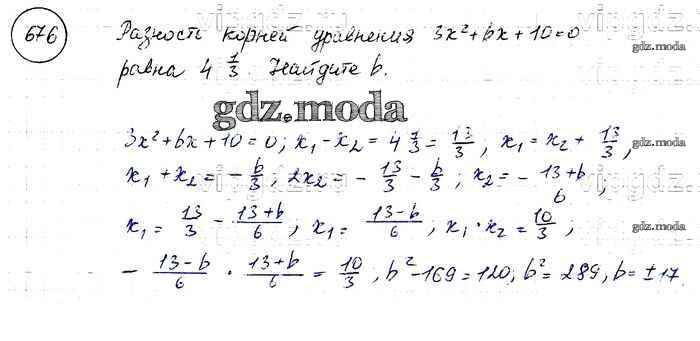 676 Разность корней уравнения 3x²+bx+10=0
равна 4 1/3. Найдите b.
gdz.moda
3x²+bx+10=0; x₁-x₂=4 1/3=13/3, x₁=x₂+13/3,
x₁+x₂=-b/3; 2x₂=-13/3-b/3; x₂=-13+b/6
x₁=13/3-13+b/6; x₁=13-b/6; x₁·x₂=10/3;
-13-b/6·13+b/6=10/3, b²-169=120; b²=289, b=±17.